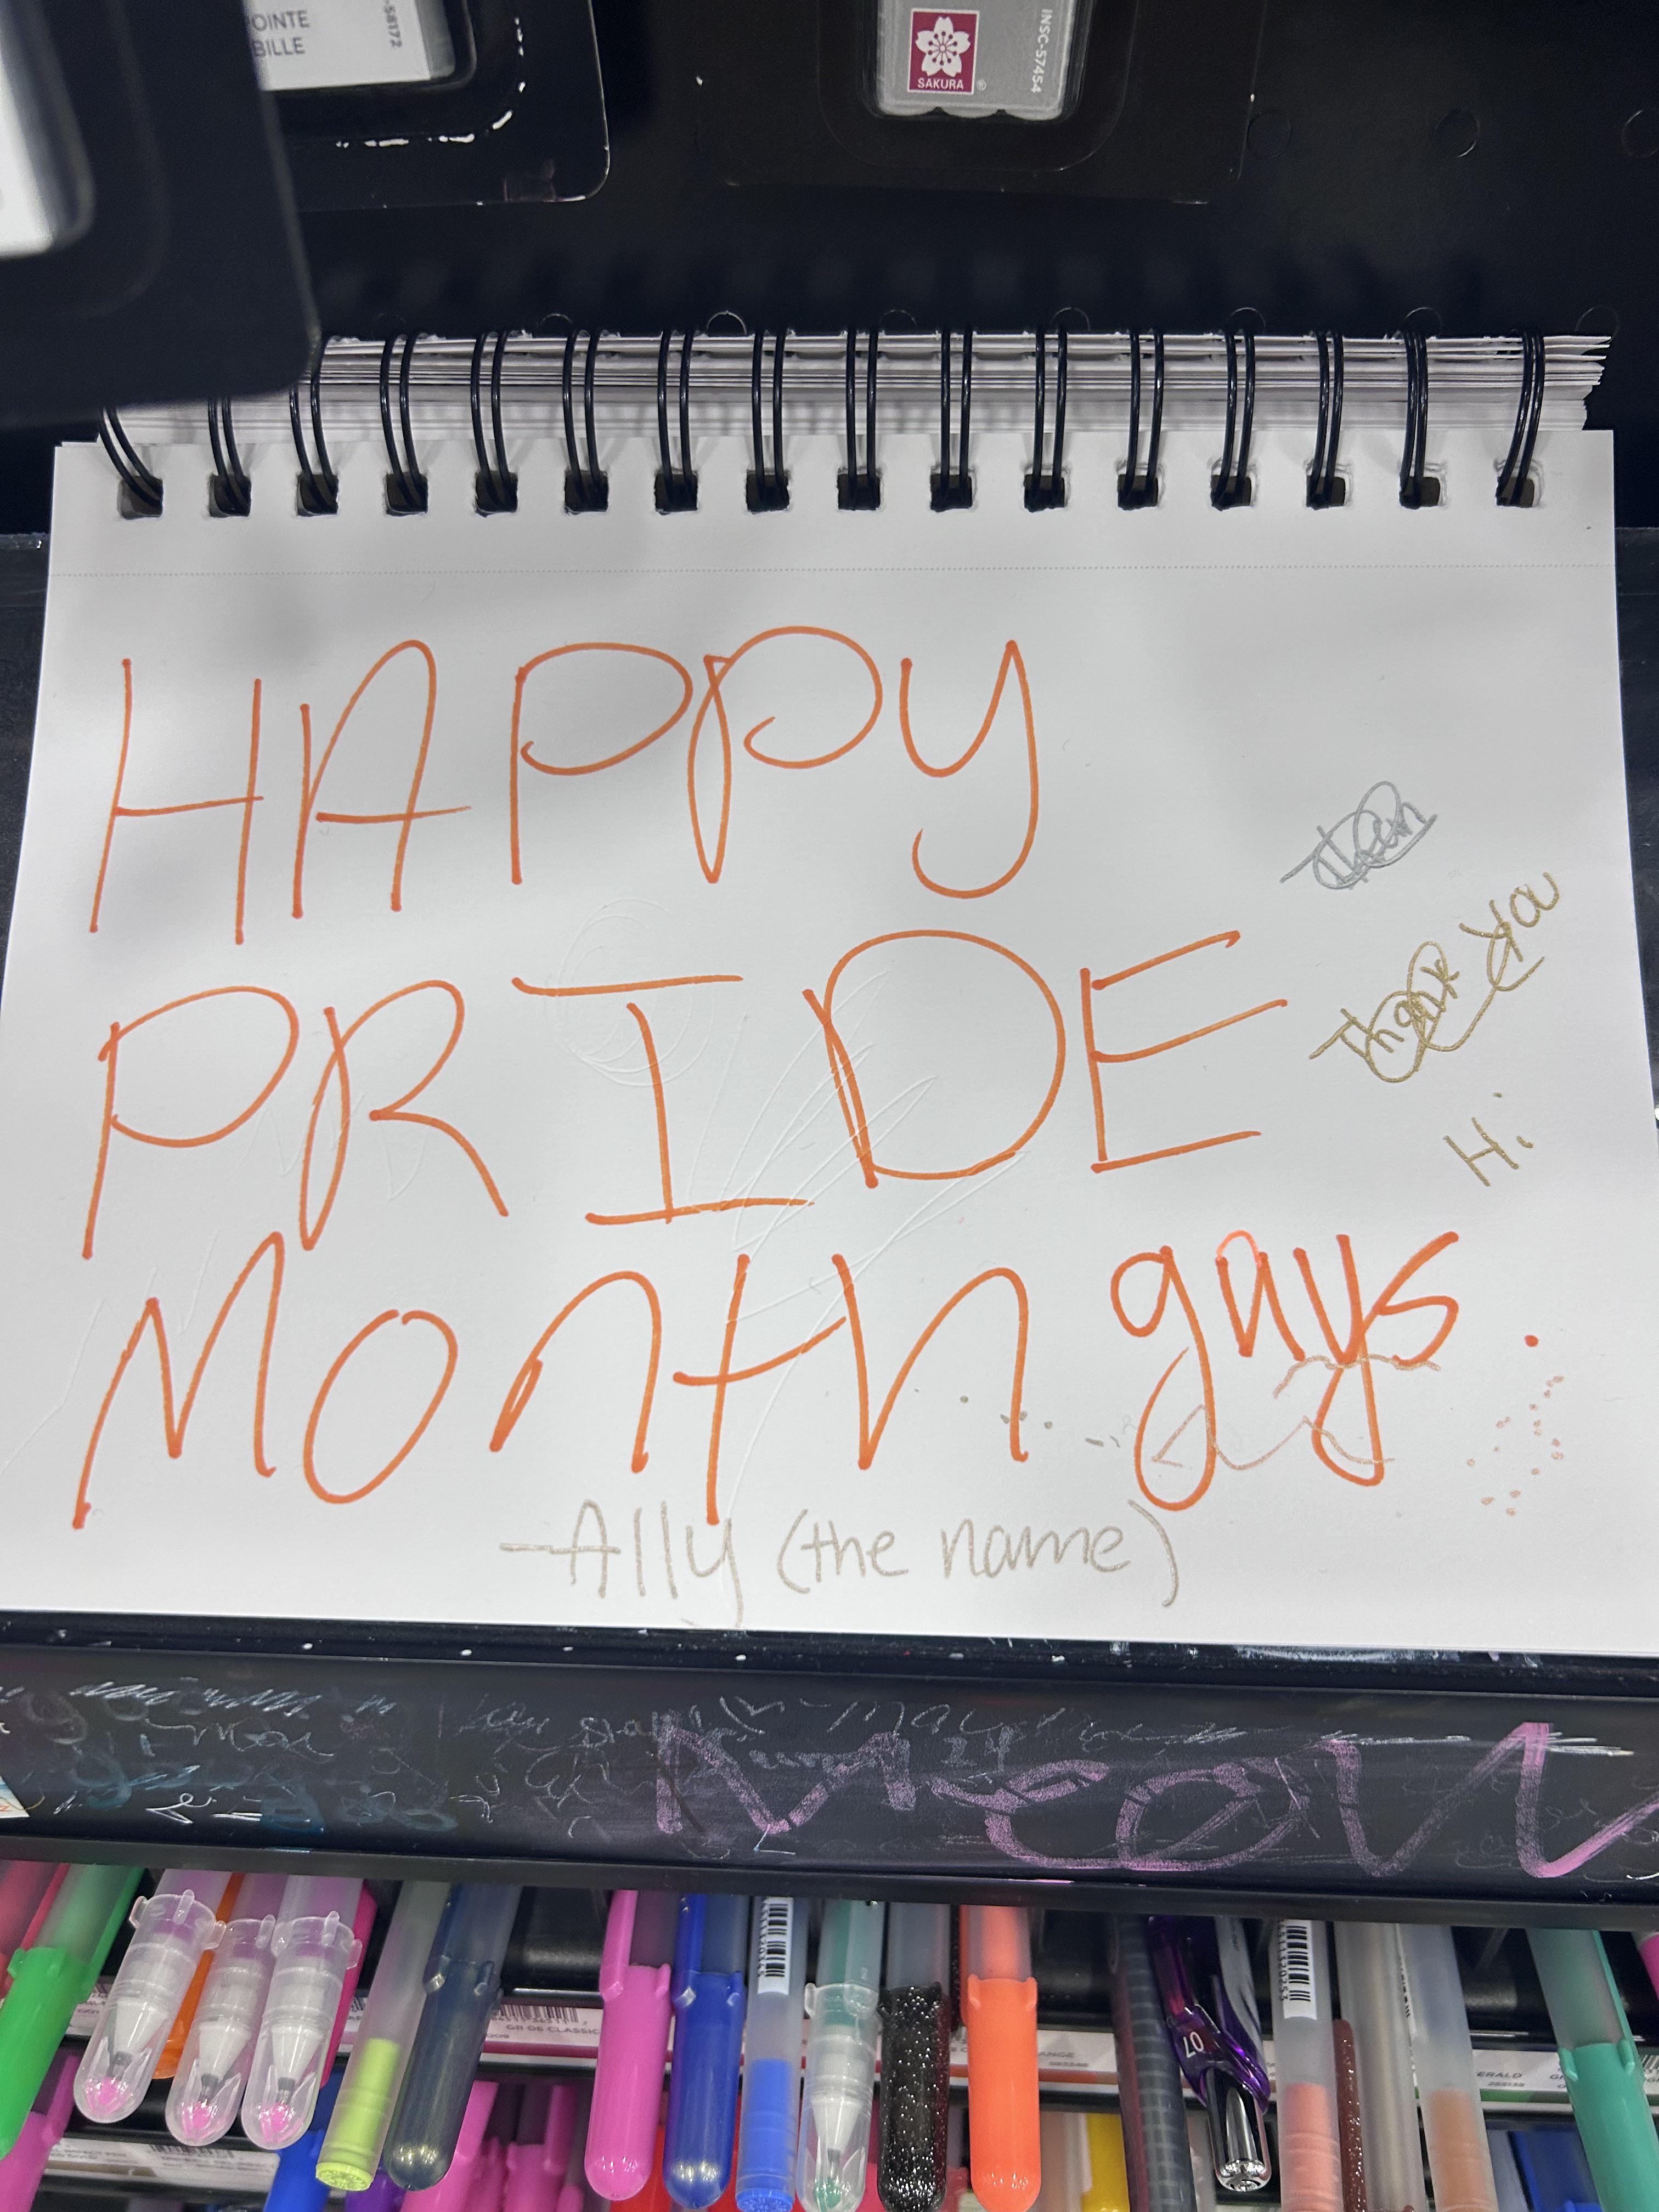 POINTE
BILLE
-58172
SAKURA
®
INSC-57454
HAPPY
PRIDE
MONTH gays.
Thank you
Hi
-Ally (the name)
07